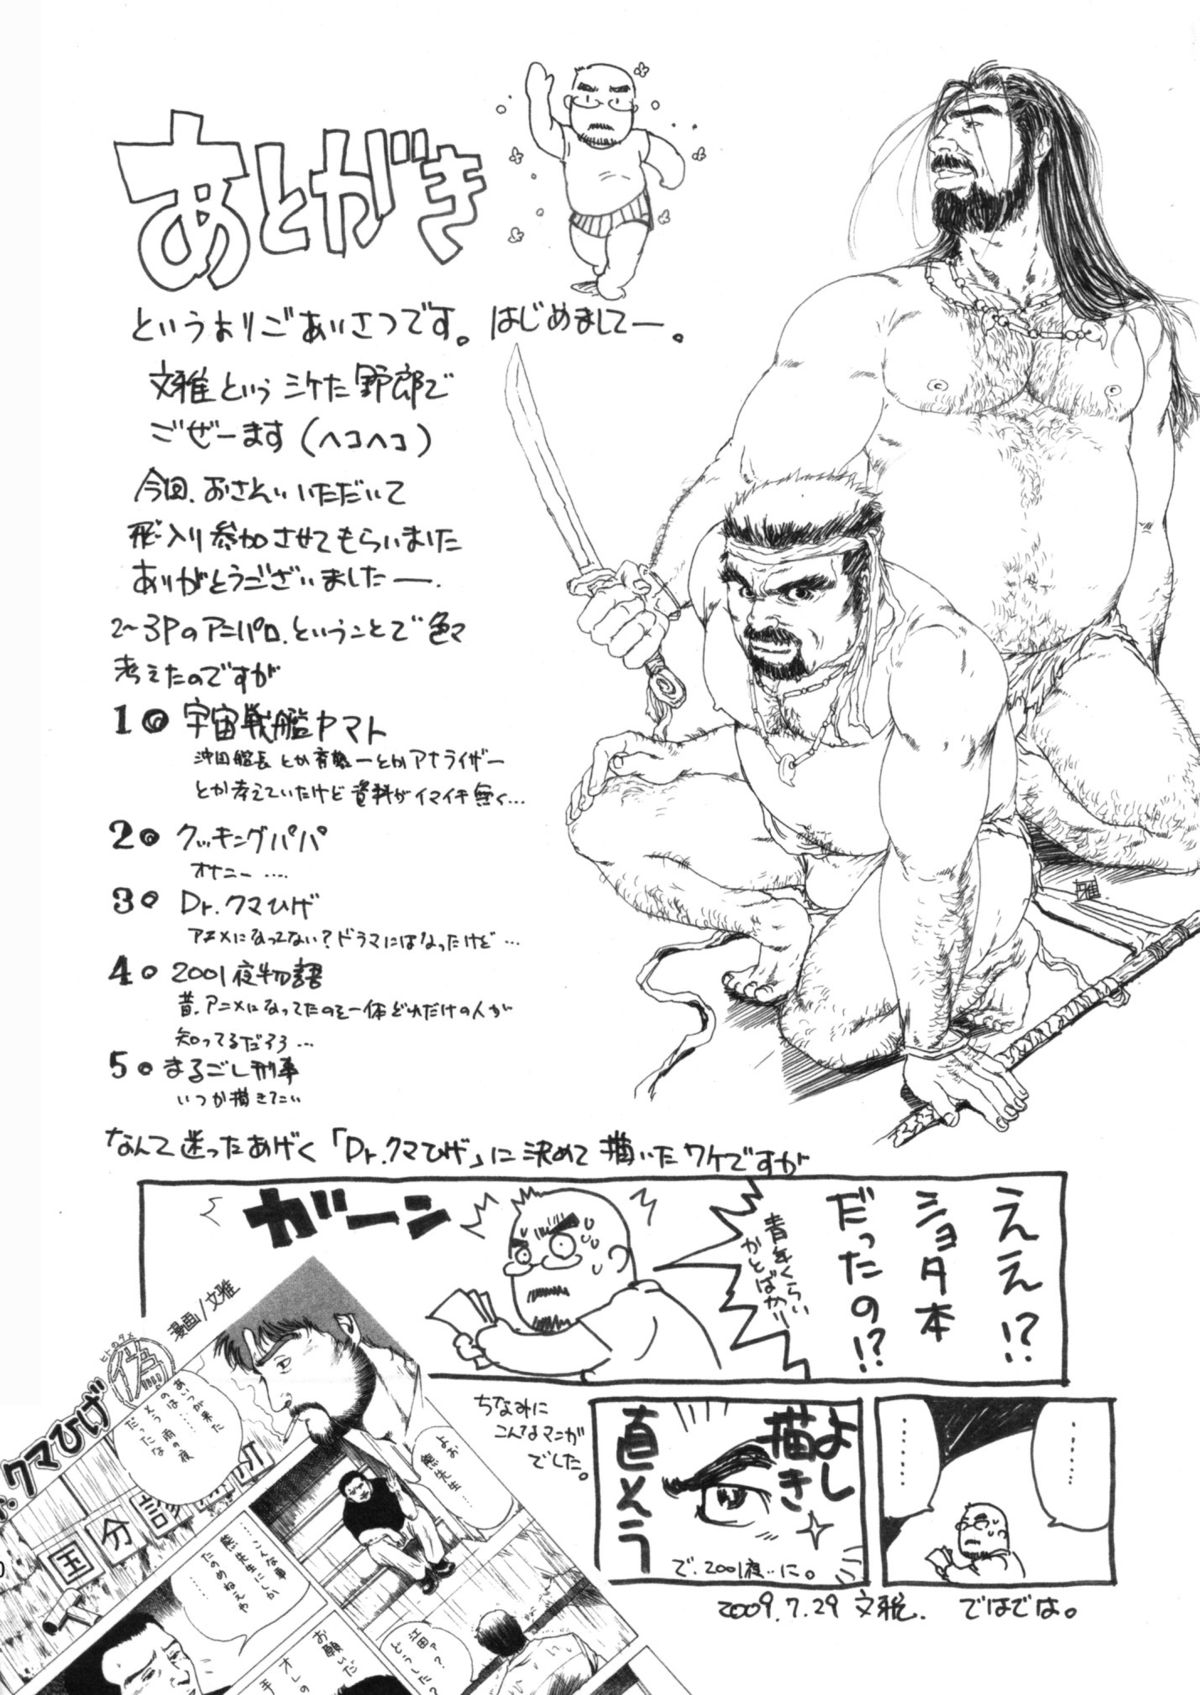 あとがき
というよりごあいさつです。はじめましてー。
文雅というシケた野郎で
ございます(ヘコヘコ)
今回、おさそいいただいて
飛入り参加させてもらいました
ありがとうございましたー.
2~3Pのアニパロ、ということで色々
考えたのですが
1。宇宙戦艦ヤマト
沖田艦長とか斉藤一とかアナライザー
とか考えていたけど資料がイマイチ無く…
2。クッキングパパ
オナニー ‥‥
3。Dr.クマひげ
アニメになってない?ドラマにはなったけど…
4。2001夜物語
昔、アニメになってたのを一体どれだけの人が
知ってるだろう…
5。まるごし刑事
いつか描きてぇい
なんて迷ったあげく「Dr.クマひげ」に決めて描いたワケですが
ええ!?
ショタ本
だったの!?
青年くらい
かとばかり
ガーン
漫画/文雅
ヒトのダメ
偽
クマひげ
あいつが来た
のは……
そう 雨の夜
だったな
よお
熊先生…
国分診
……こんな事
熊先生にしか
たのめねえや
お願いだ
オレの
江田?
ちなみに
こんなマンガ
でした。
よし
描き
直そう
で、2001夜…に。
……
……
2009.7.29 文雅. ではでは。
雅